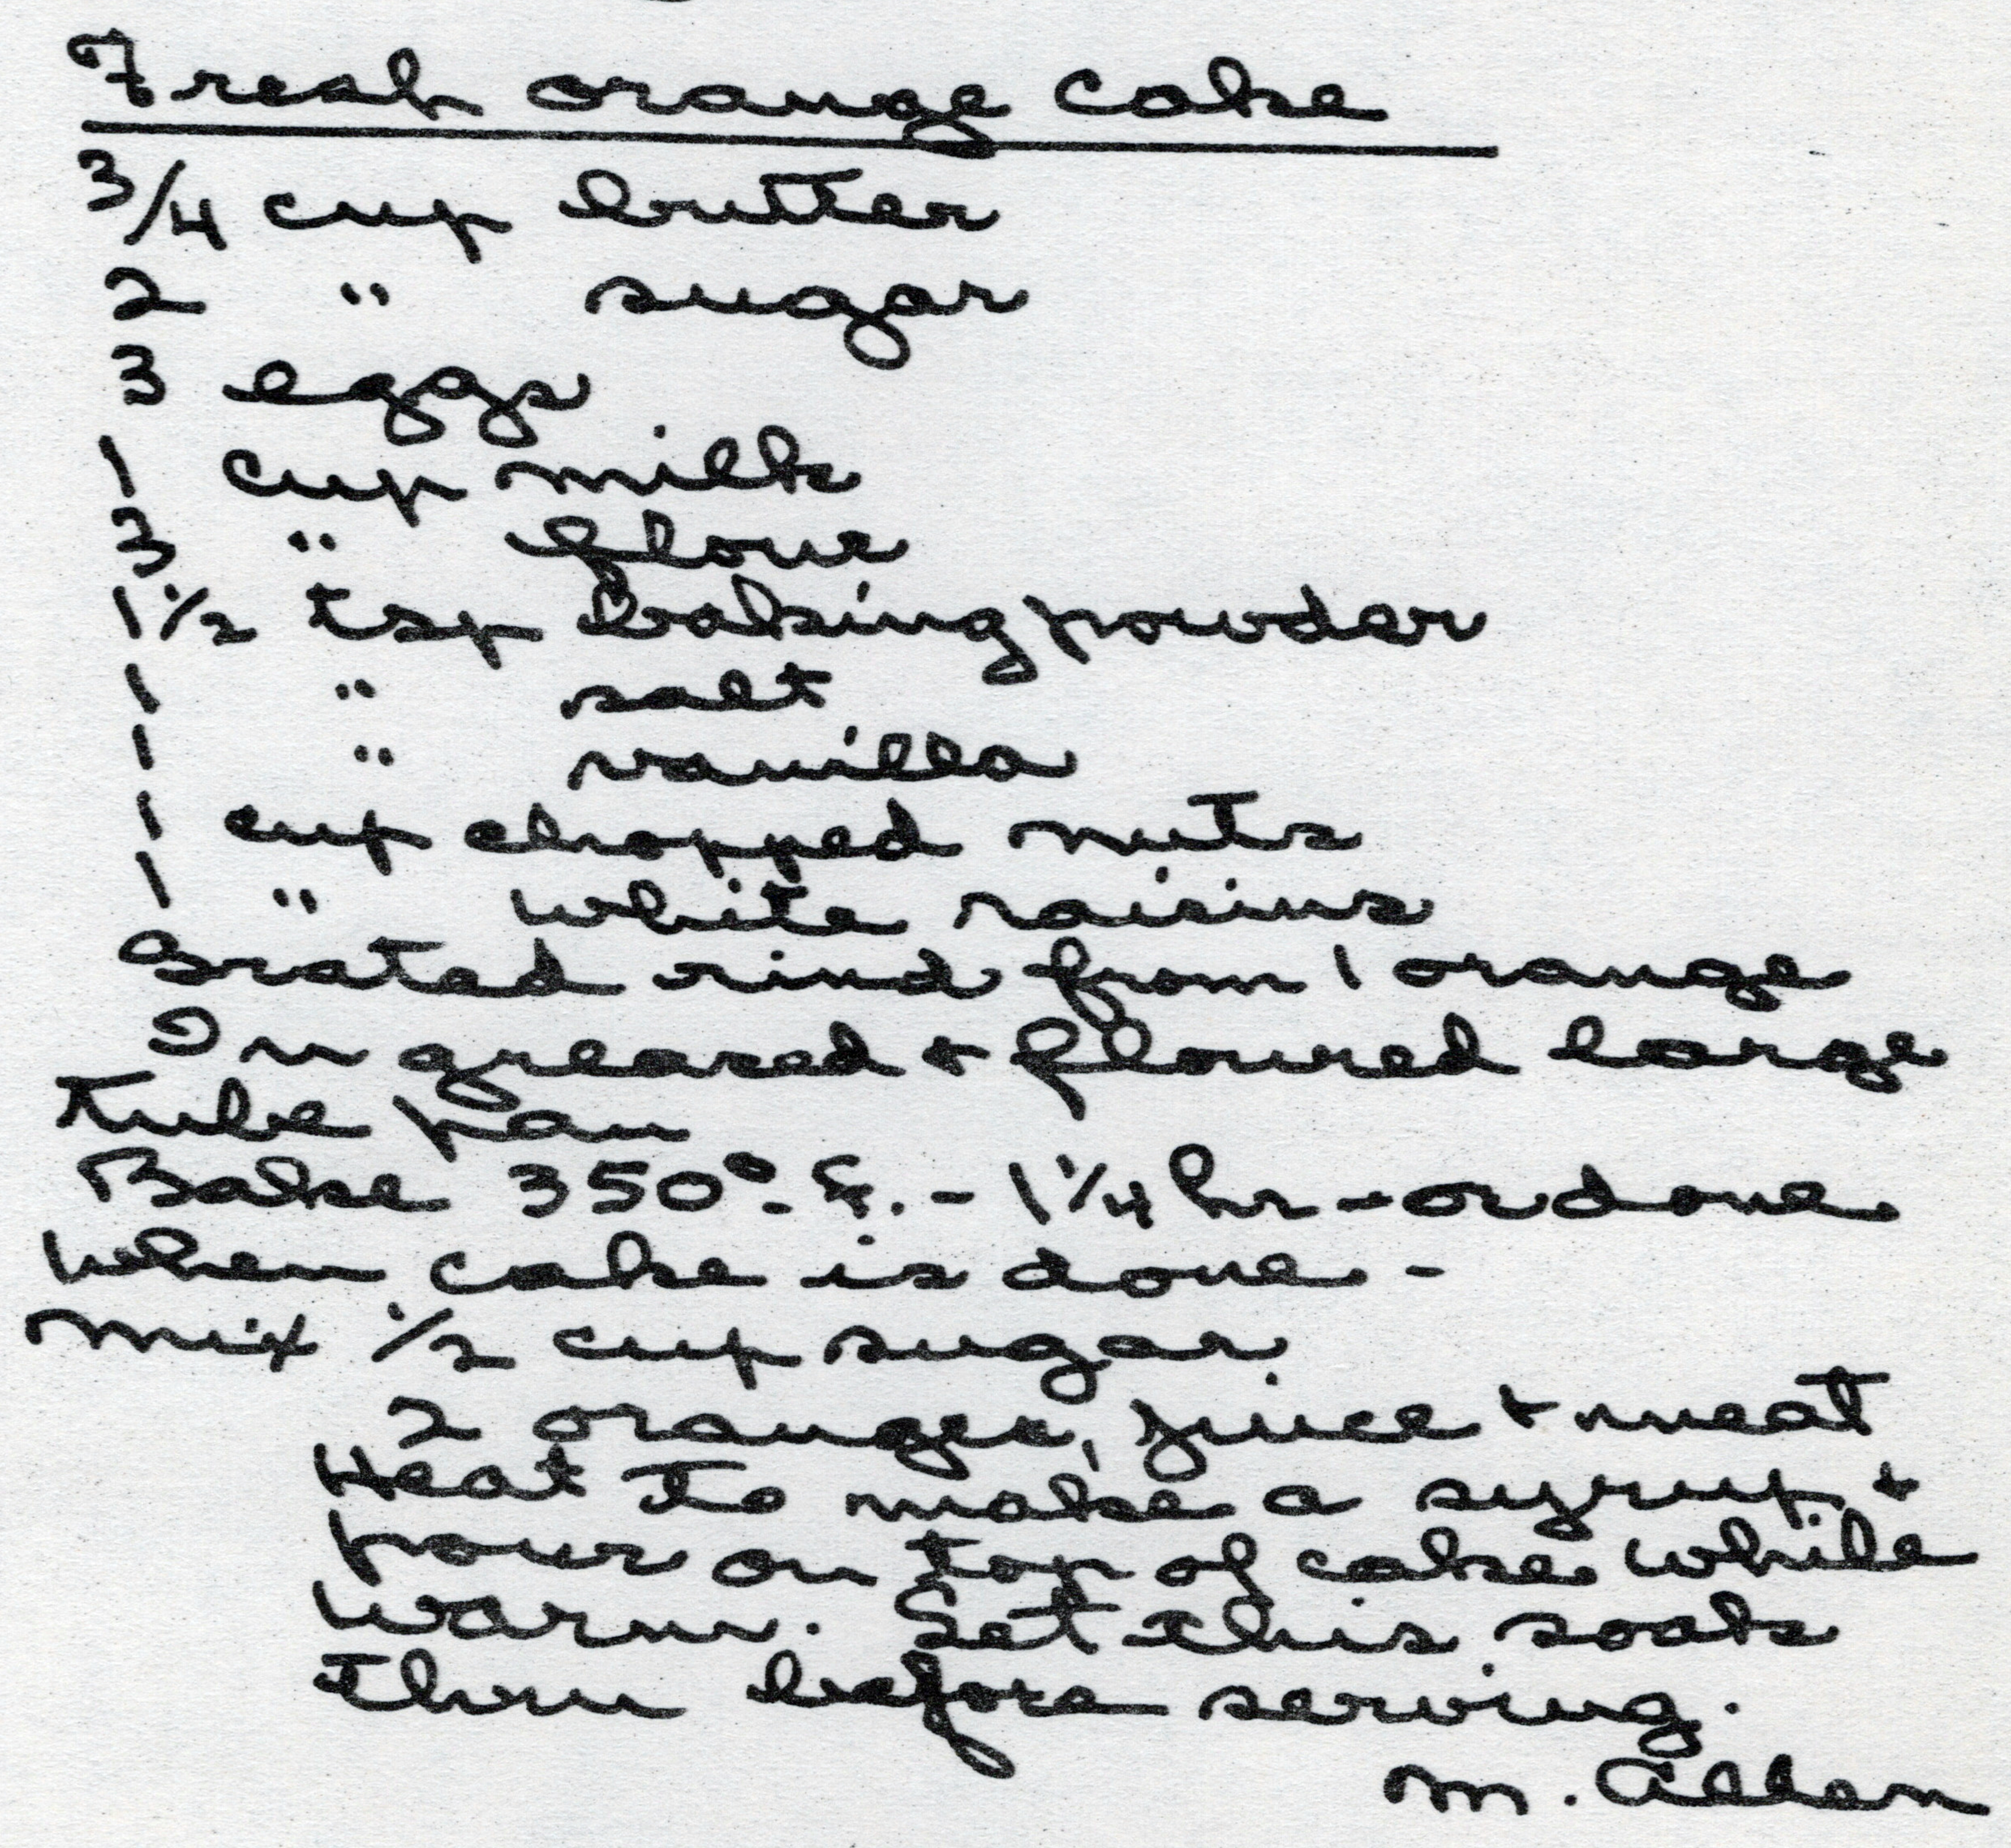 Fresh orange cake
3/4 cup butter
2 " sugar
3 eggs
1 cup milk
3 " flour
1 1/2 tsp baking powder
1 " salt
1 " vanilla
1 cup chopped nuts
1 " white raisins
Grated rind from 1 orange
In greased + floured large
tube pan
Bake 350°. F. - 1 1/4 hr - or done
When cake is done -
Mix 1/2 cup sugar
2 oranges, juice + meat
Heat to make a syrup +
pour on top of cake while
warm. Let this soak
thru before serving.
M. Allen